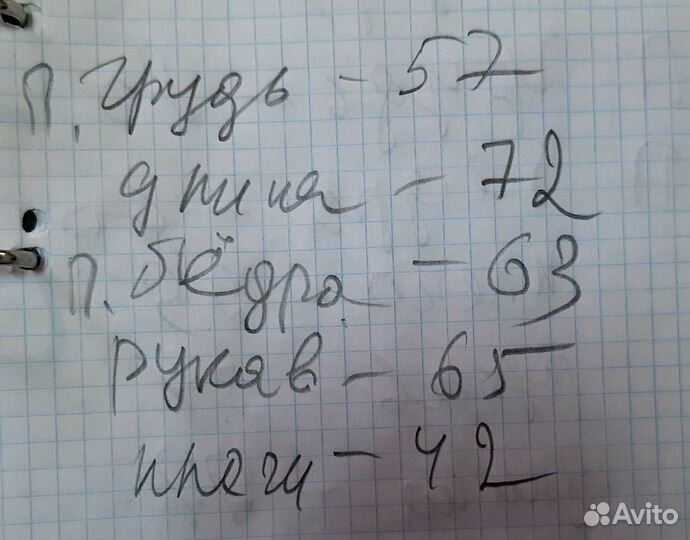 П. грудь - 57
длина - 72
П. бёдра - 63
рукав - 65
плечи - 42
Avito